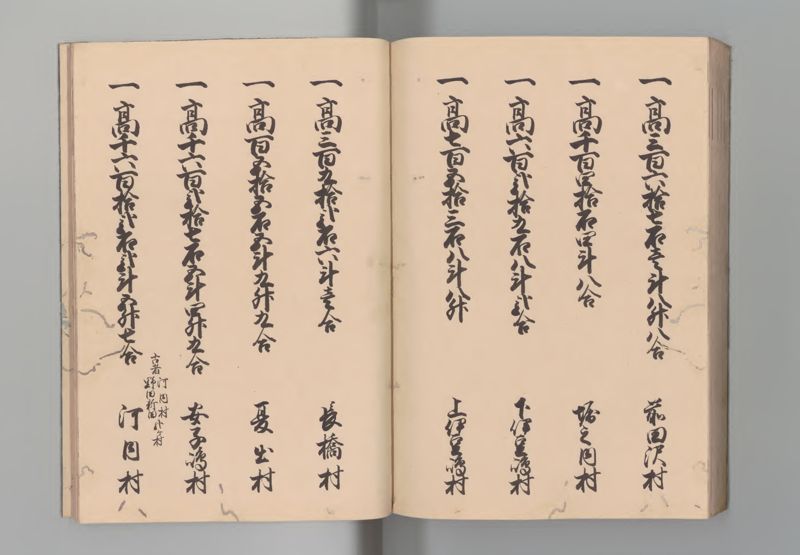 一高三百六拾七石壱斗八升八合 前田沢村
一高千百四拾石四斗八合 堀之内村
一高六百弐拾九石八斗弐合 下伊豆嶋村
一高七百五拾三石八斗八升 上伊豆嶋村
一高三百九拾弐石六斗壱合 長橋村
一高百五拾五石五斗九升九合 夏出村
一高千六百弐拾七石五斗四升九合 安子嶋村
古者 河内村 野田新田 弐ケ村
一高千六百拾弐石弐斗五升七合 河内村